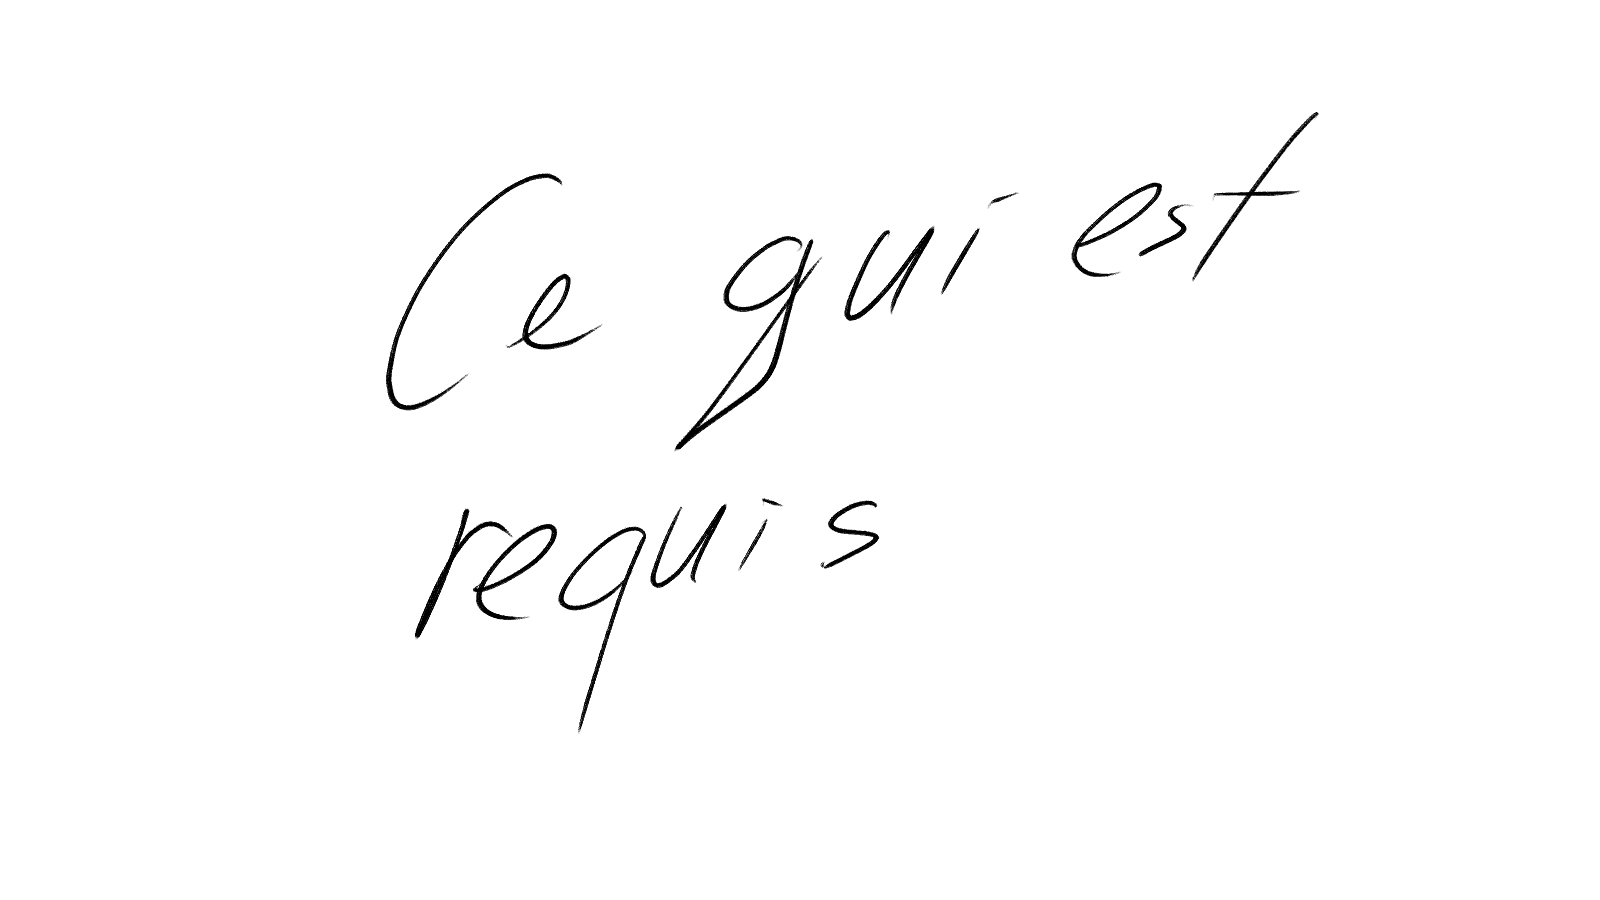 Ce qui est
requis